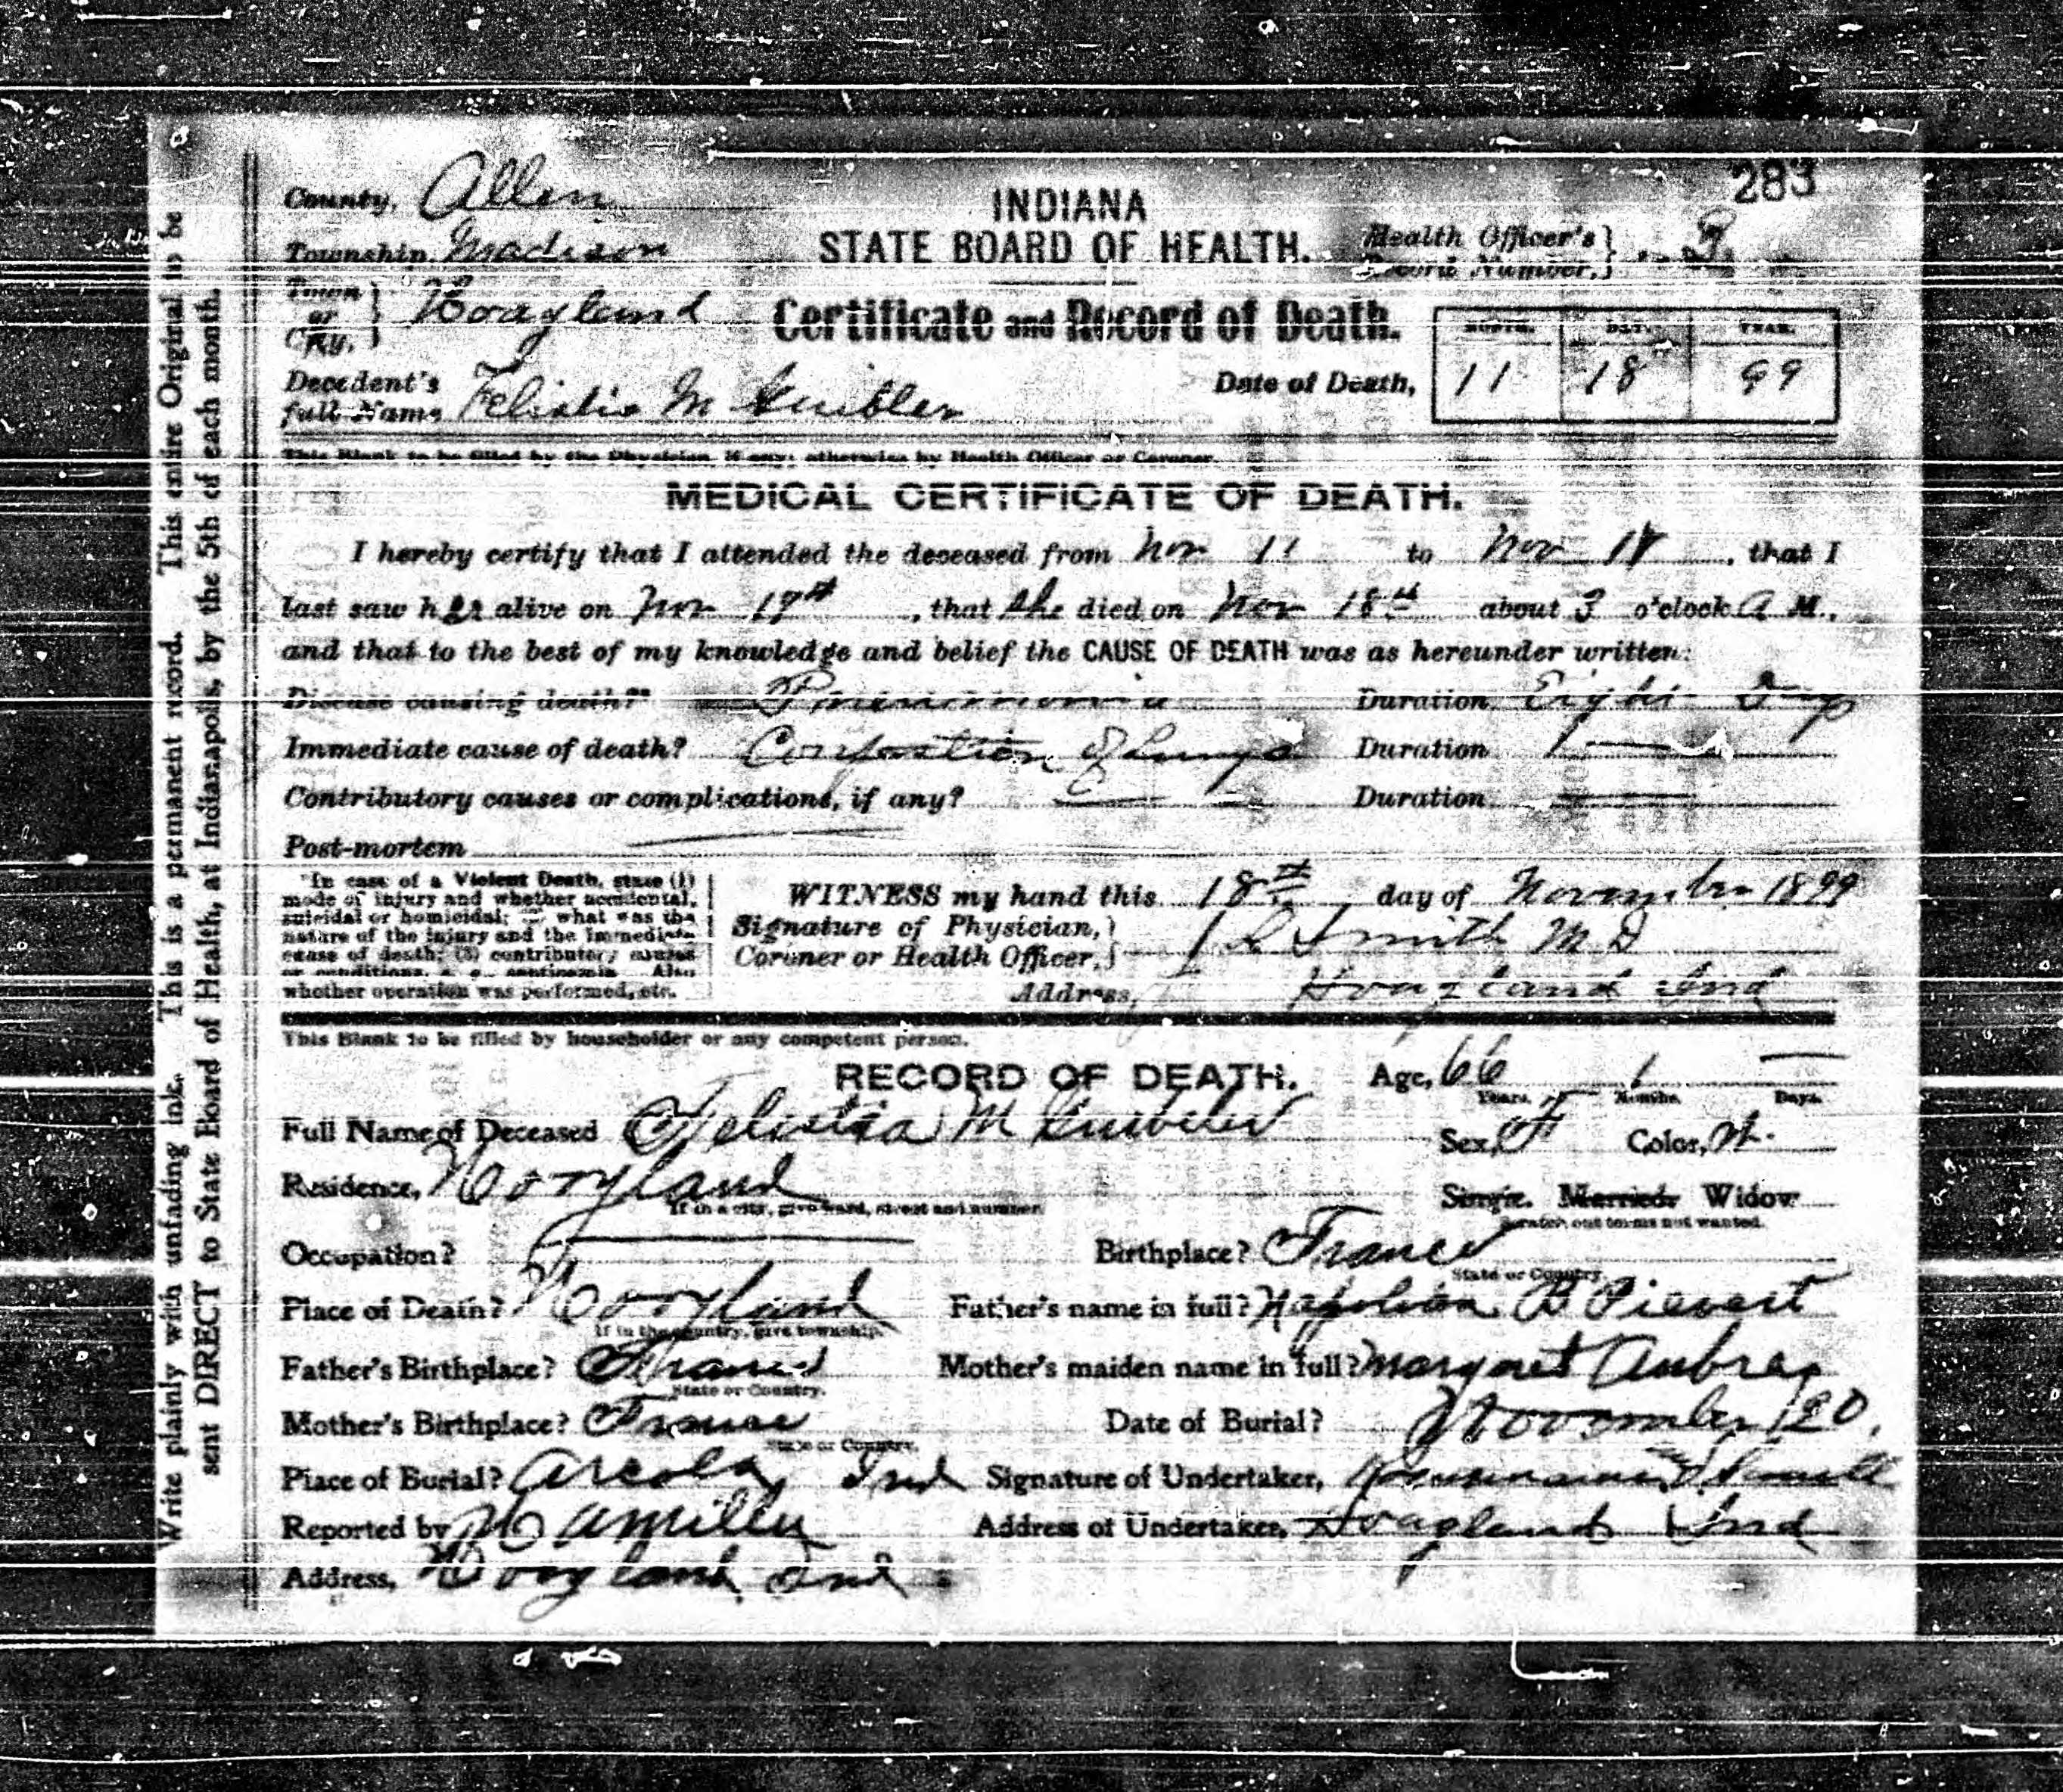 283
County, Allen
INDIANA
Township, Madison
STATE BOARD OF HEALTH.
Health Officer's Record Number,
Town or City, Hoagland
Certificate and Record of Death.
MONTH. DAY. YEAR.
Decedent's full Name M
Date of Death, 11 18 99
This Blank to be filled by the Physician, if any; otherwise by Health Officer or Coroner.
MEDICAL CERTIFICATE OF DEATH.
I hereby certify that I attended the deceased from Nov 11 to Nov 18, that I
last saw her alive on Nov 17th, that she died on Nov 18th about 3 o'clock A M.,
and that to the best of my knowledge and belief the CAUSE OF DEATH was as hereunder written:
Disease causing death?* Pneumonia Duration Eight Days
Immediate cause of death? of Lungs Duration
Contributory causes or complications, if any? Duration
Post-mortem
*In case of a Violent Death, state (1)
mode of injury and whether accidental,
suicidal or homicidal; what was the
nature of the injury and the immediate
cause of death; (3) contributory causes
or conditions, e. g., septicemia. Also
whether operation was performed, etc.
WITNESS my hand this 18th day of November 1899
Signature of Physician, Coroner or Health Officer, Smith M D
Address, Hoagland Ind
This Blank to be filled by householder or any competent person.
RECORD OF DEATH.
Age, 66 Years, 1 Months, — Days.
Full Name of Deceased M
Sex, F Color, W.
Residence, Hoagland
If in a city, give ward, street and number.
Single. Married. Widow
Scratch out terms not wanted.
Occupation?
Birthplace? France
State or Country.
Place of Death? Hoagland
If in the country, give township.
Father's name in full? Napolion B Pievert
Father's Birthplace? France
State or Country.
Mother's maiden name in full? Margaret Aubrey
Mother's Birthplace? France
State or Country.
Date of Burial? November 20,
Place of Burial? Arcola, Ind
Signature of Undertaker,
Reported by
Address of Undertaker, Hoagland Ind
Address, Hoagland Ind
Write plainly with unfading ink. This is a permanent record. This entire Original is to be
sent DIRECT to State Board of Health, at Indianapolis, by the 5th of each month.